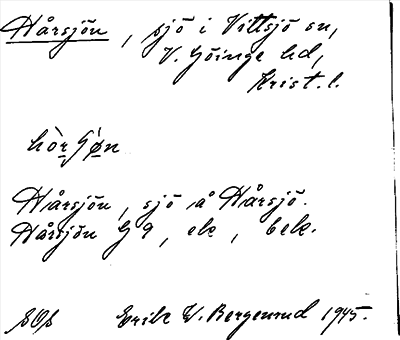 Hårsjön, sjö i Vittsjö sn,
V. Göinge hd,
Krist. l.
hòrʃø̀n
Hårsjön, sjö å Hårsjö.
Hårsjön G9, ek, bek.
SOS Erik W. Bergenrud 1945.